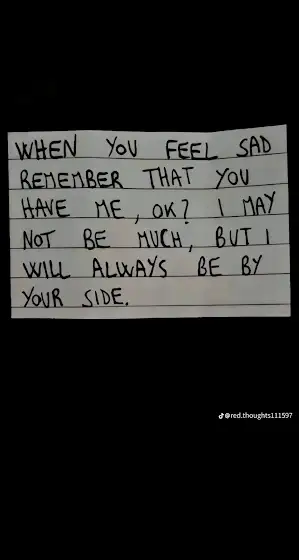 WHEN YOU FEEL SAD
REMEMBER THAT YOU
HAVE ME, OK? I MAY
NOT BE MUCH, BUT I
WILL ALWAYS BE BY
YOUR SIDE.
@red.thoughts111597